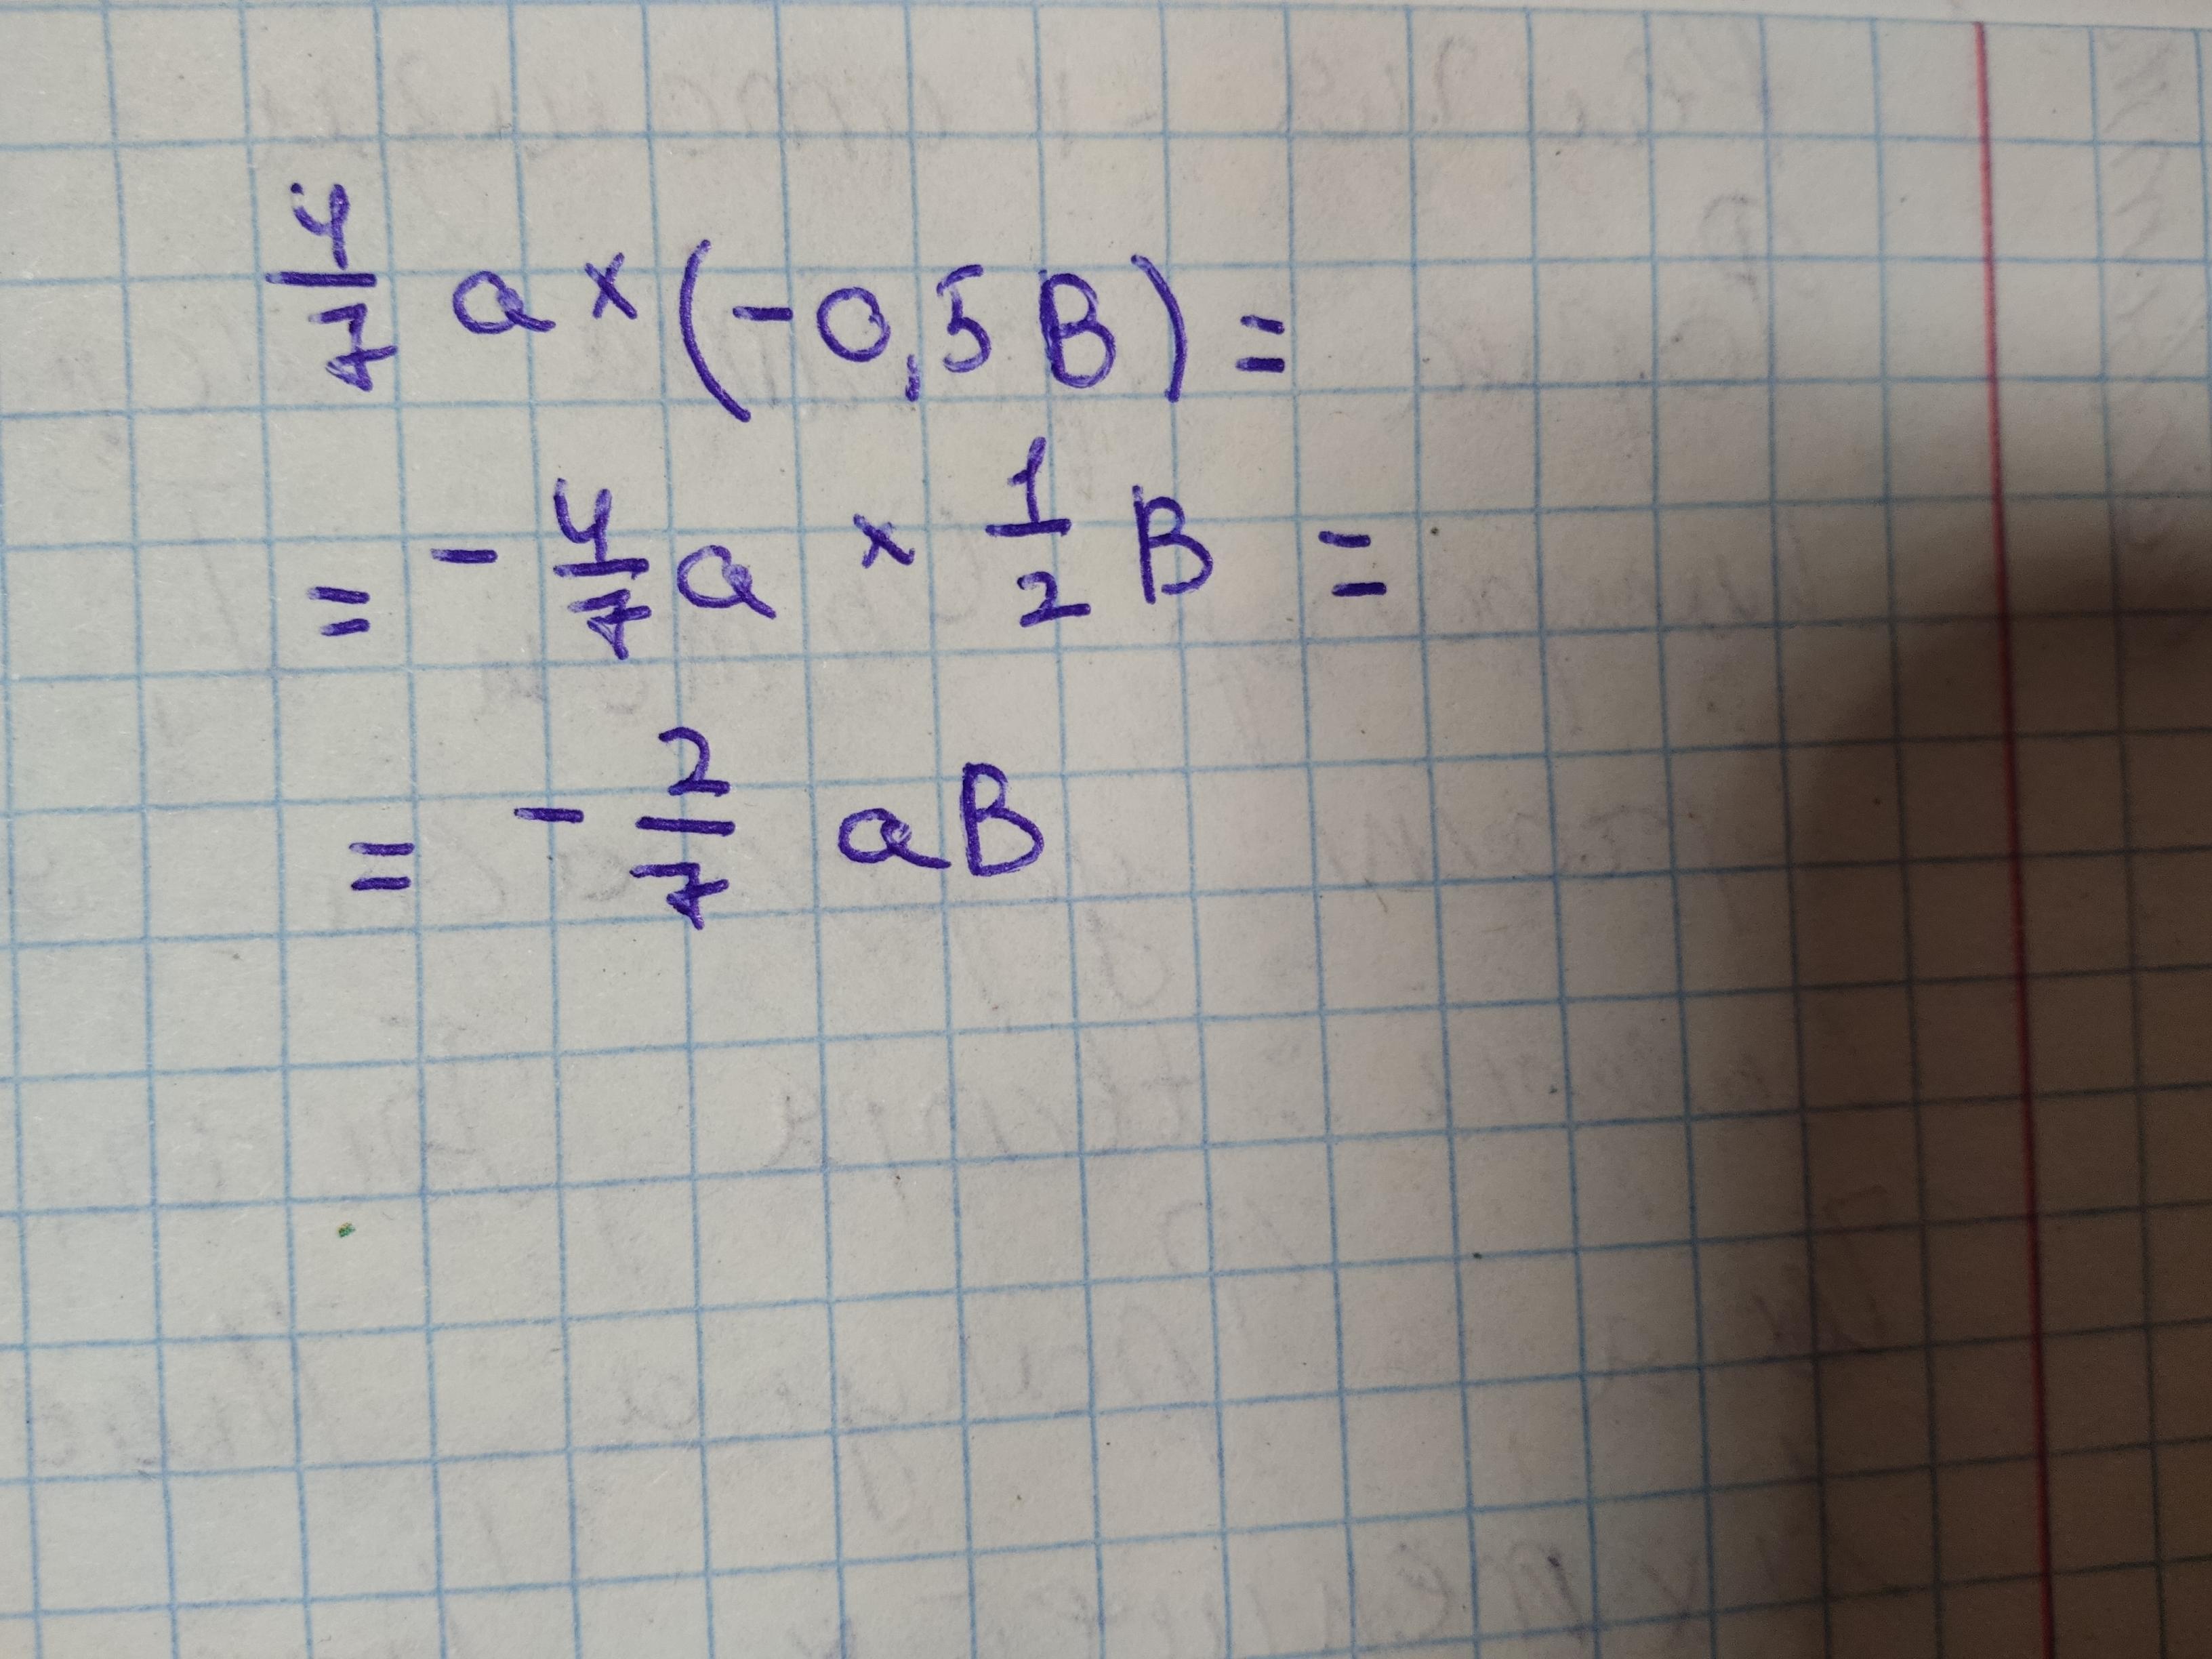 4/7 a × (-0,5 B) =
= - 4/7 a × 1/2 B =
= - 2/7 aB